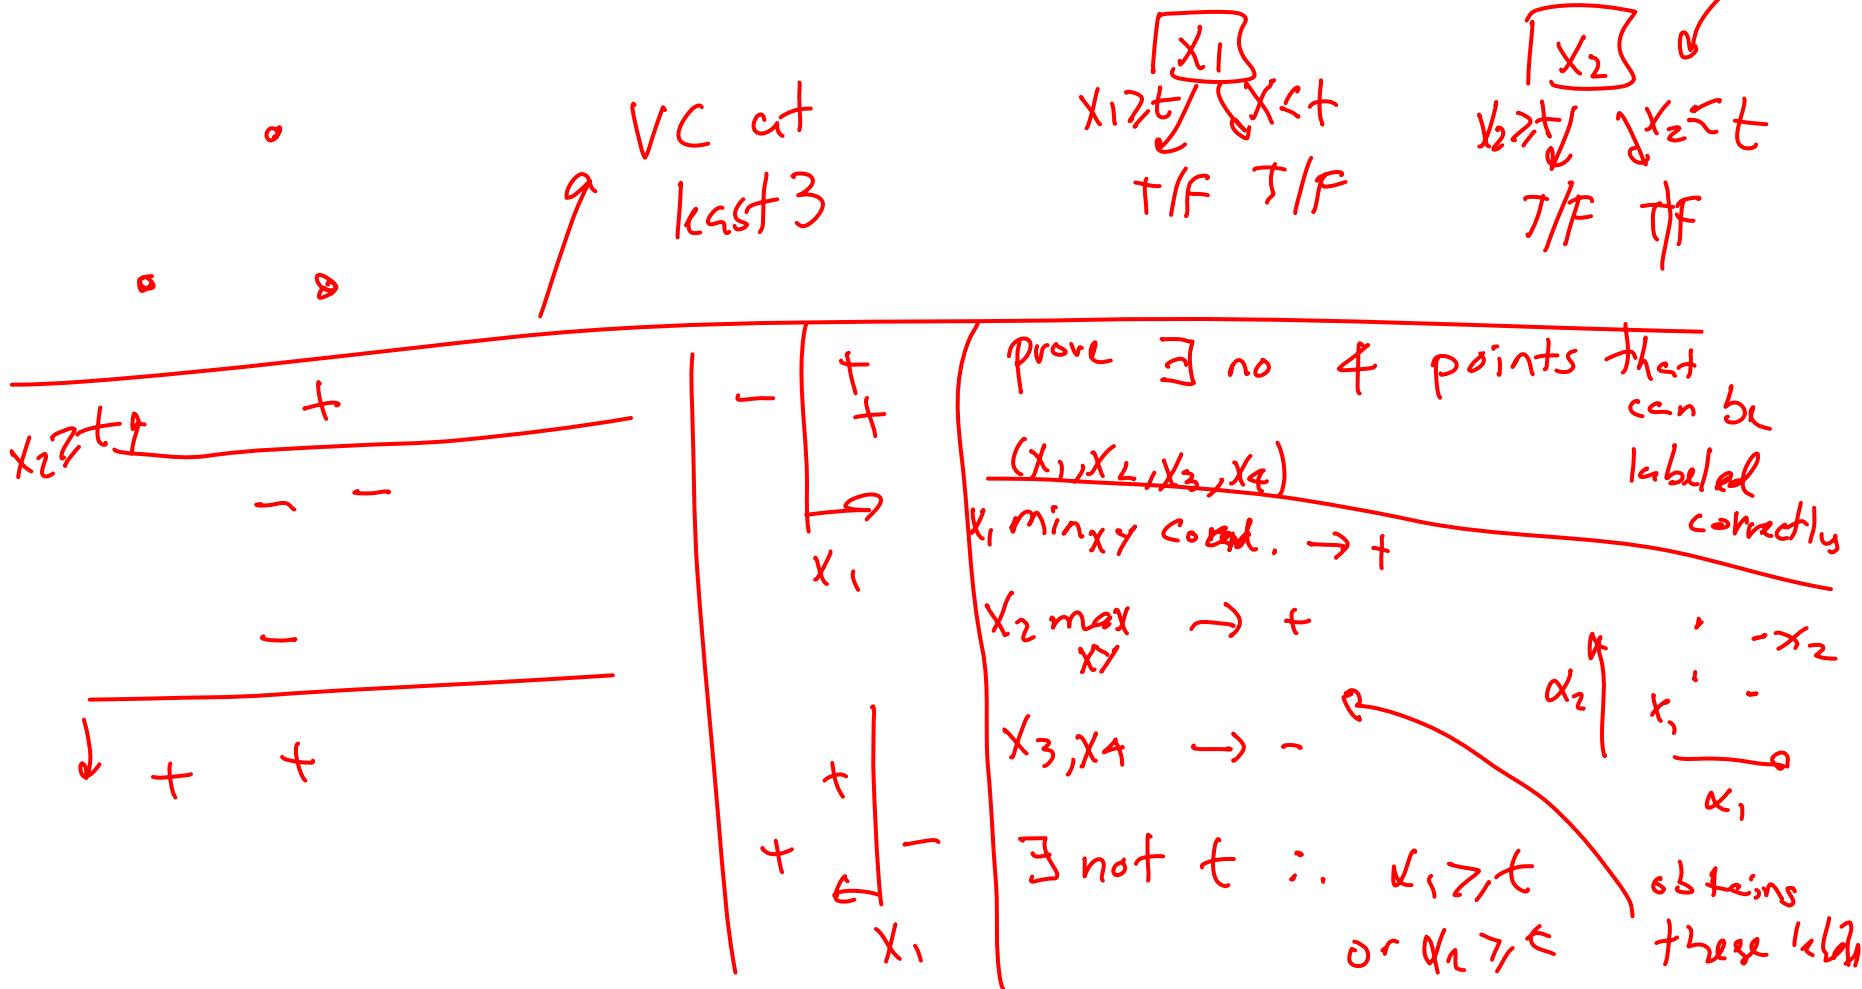 VC at
least 3
X1
X1≥t X<t
T/F T/F
X2
X2≥t X2<t
T/F T/F
+
X2≥t
- -
-
+ +
- +
+
X1
+
+ -
X1
prove ∃ no 4 points that
can be
labeled
correctly
(X1,X2,X3,X4)
X1 min xy coord. → +
X2 max → +
xy
X3,X4 → -
∃ not t ∴ α1≥t
or α2≥t
-X2
α2
X1
α1
obtains
these labels